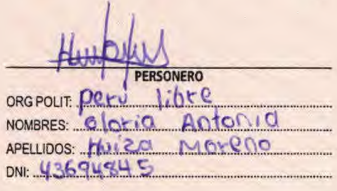 PERSONERO
ORG POLIT: perú libre
NOMBRES: Gloria Antonia
APELLIDOS: Huiza Moreno
DNI: 43694845